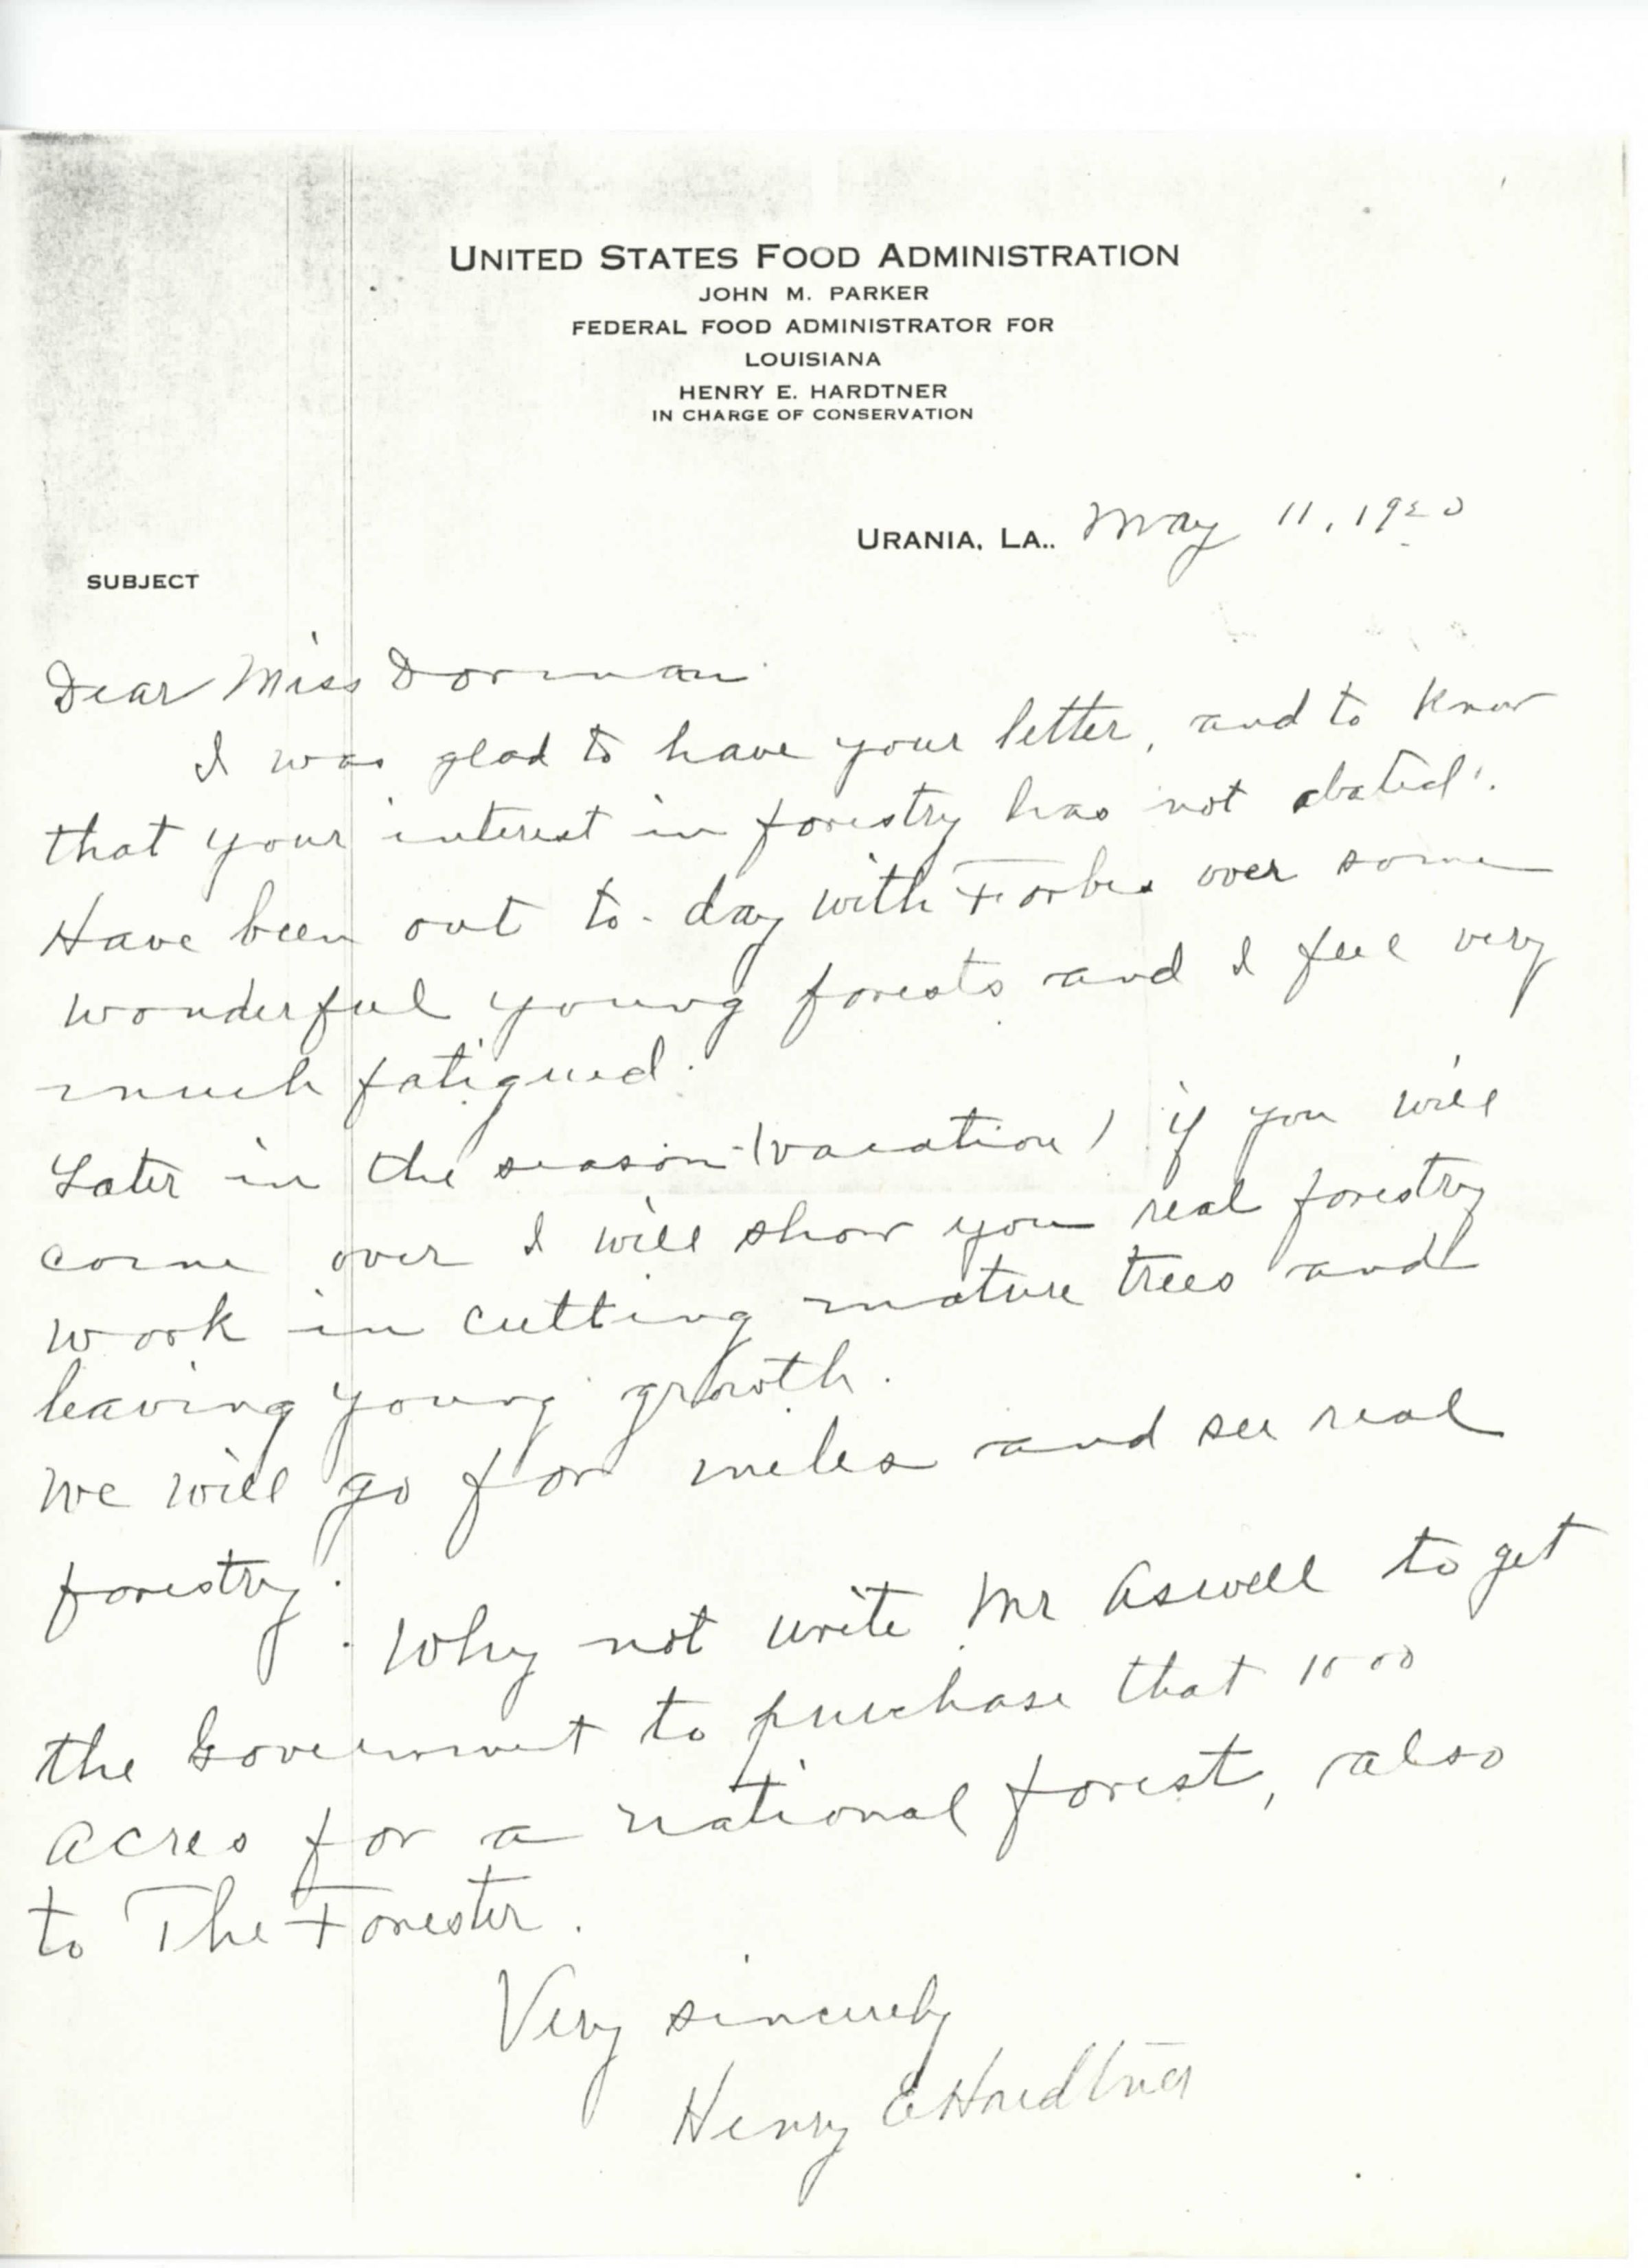 UNITED STATES FOOD ADMINISTRATION
JOHN M. PARKER
FEDERAL FOOD ADMINISTRATOR FOR
LOUISIANA
HENRY E. HARDTNER
IN CHARGE OF CONSERVATION
URANIA, LA.. May 11, 1920
SUBJECT
Dear Miss Dorman
I was glad to have your letter, and to know
that your interest in forestry has not abated.
Have been out to-day with Forbes over some
wonderful young forests and I feel very
much fatigued.
Later in the season (vacation) if you will
come over I will show you real forestry
work in cutting mature trees and
leaving young growth.
We will go for miles and see real
forestry.
Why not write Mr Aswell to get
the Government to purchase that
acres for a national forest, also
to The Forester.
Very sincerely
Henry E Hardtner